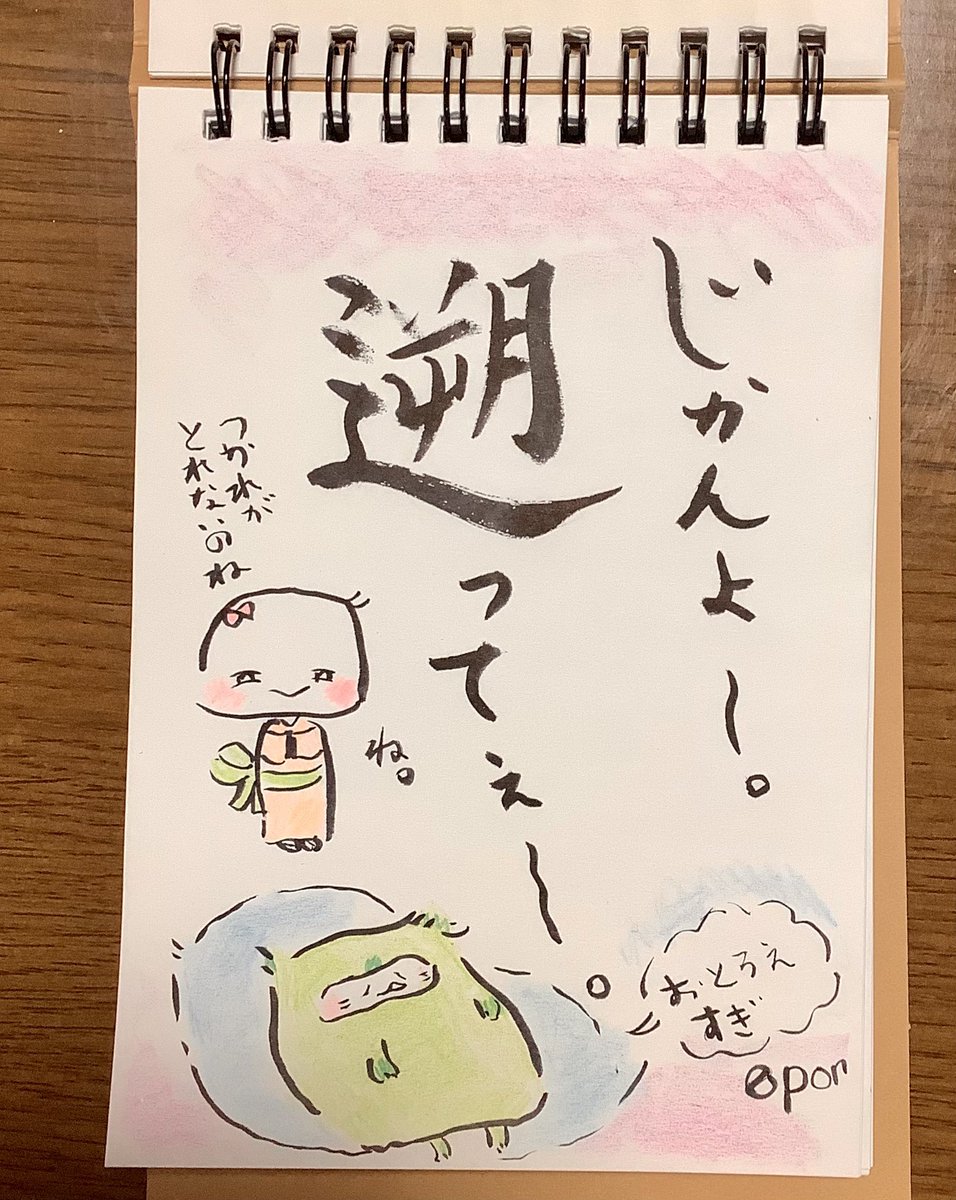 じかんよ〜。
遡ってぇ〜。
つかれが
とれないのね
ね。
おとろえ
すぎ
@pon